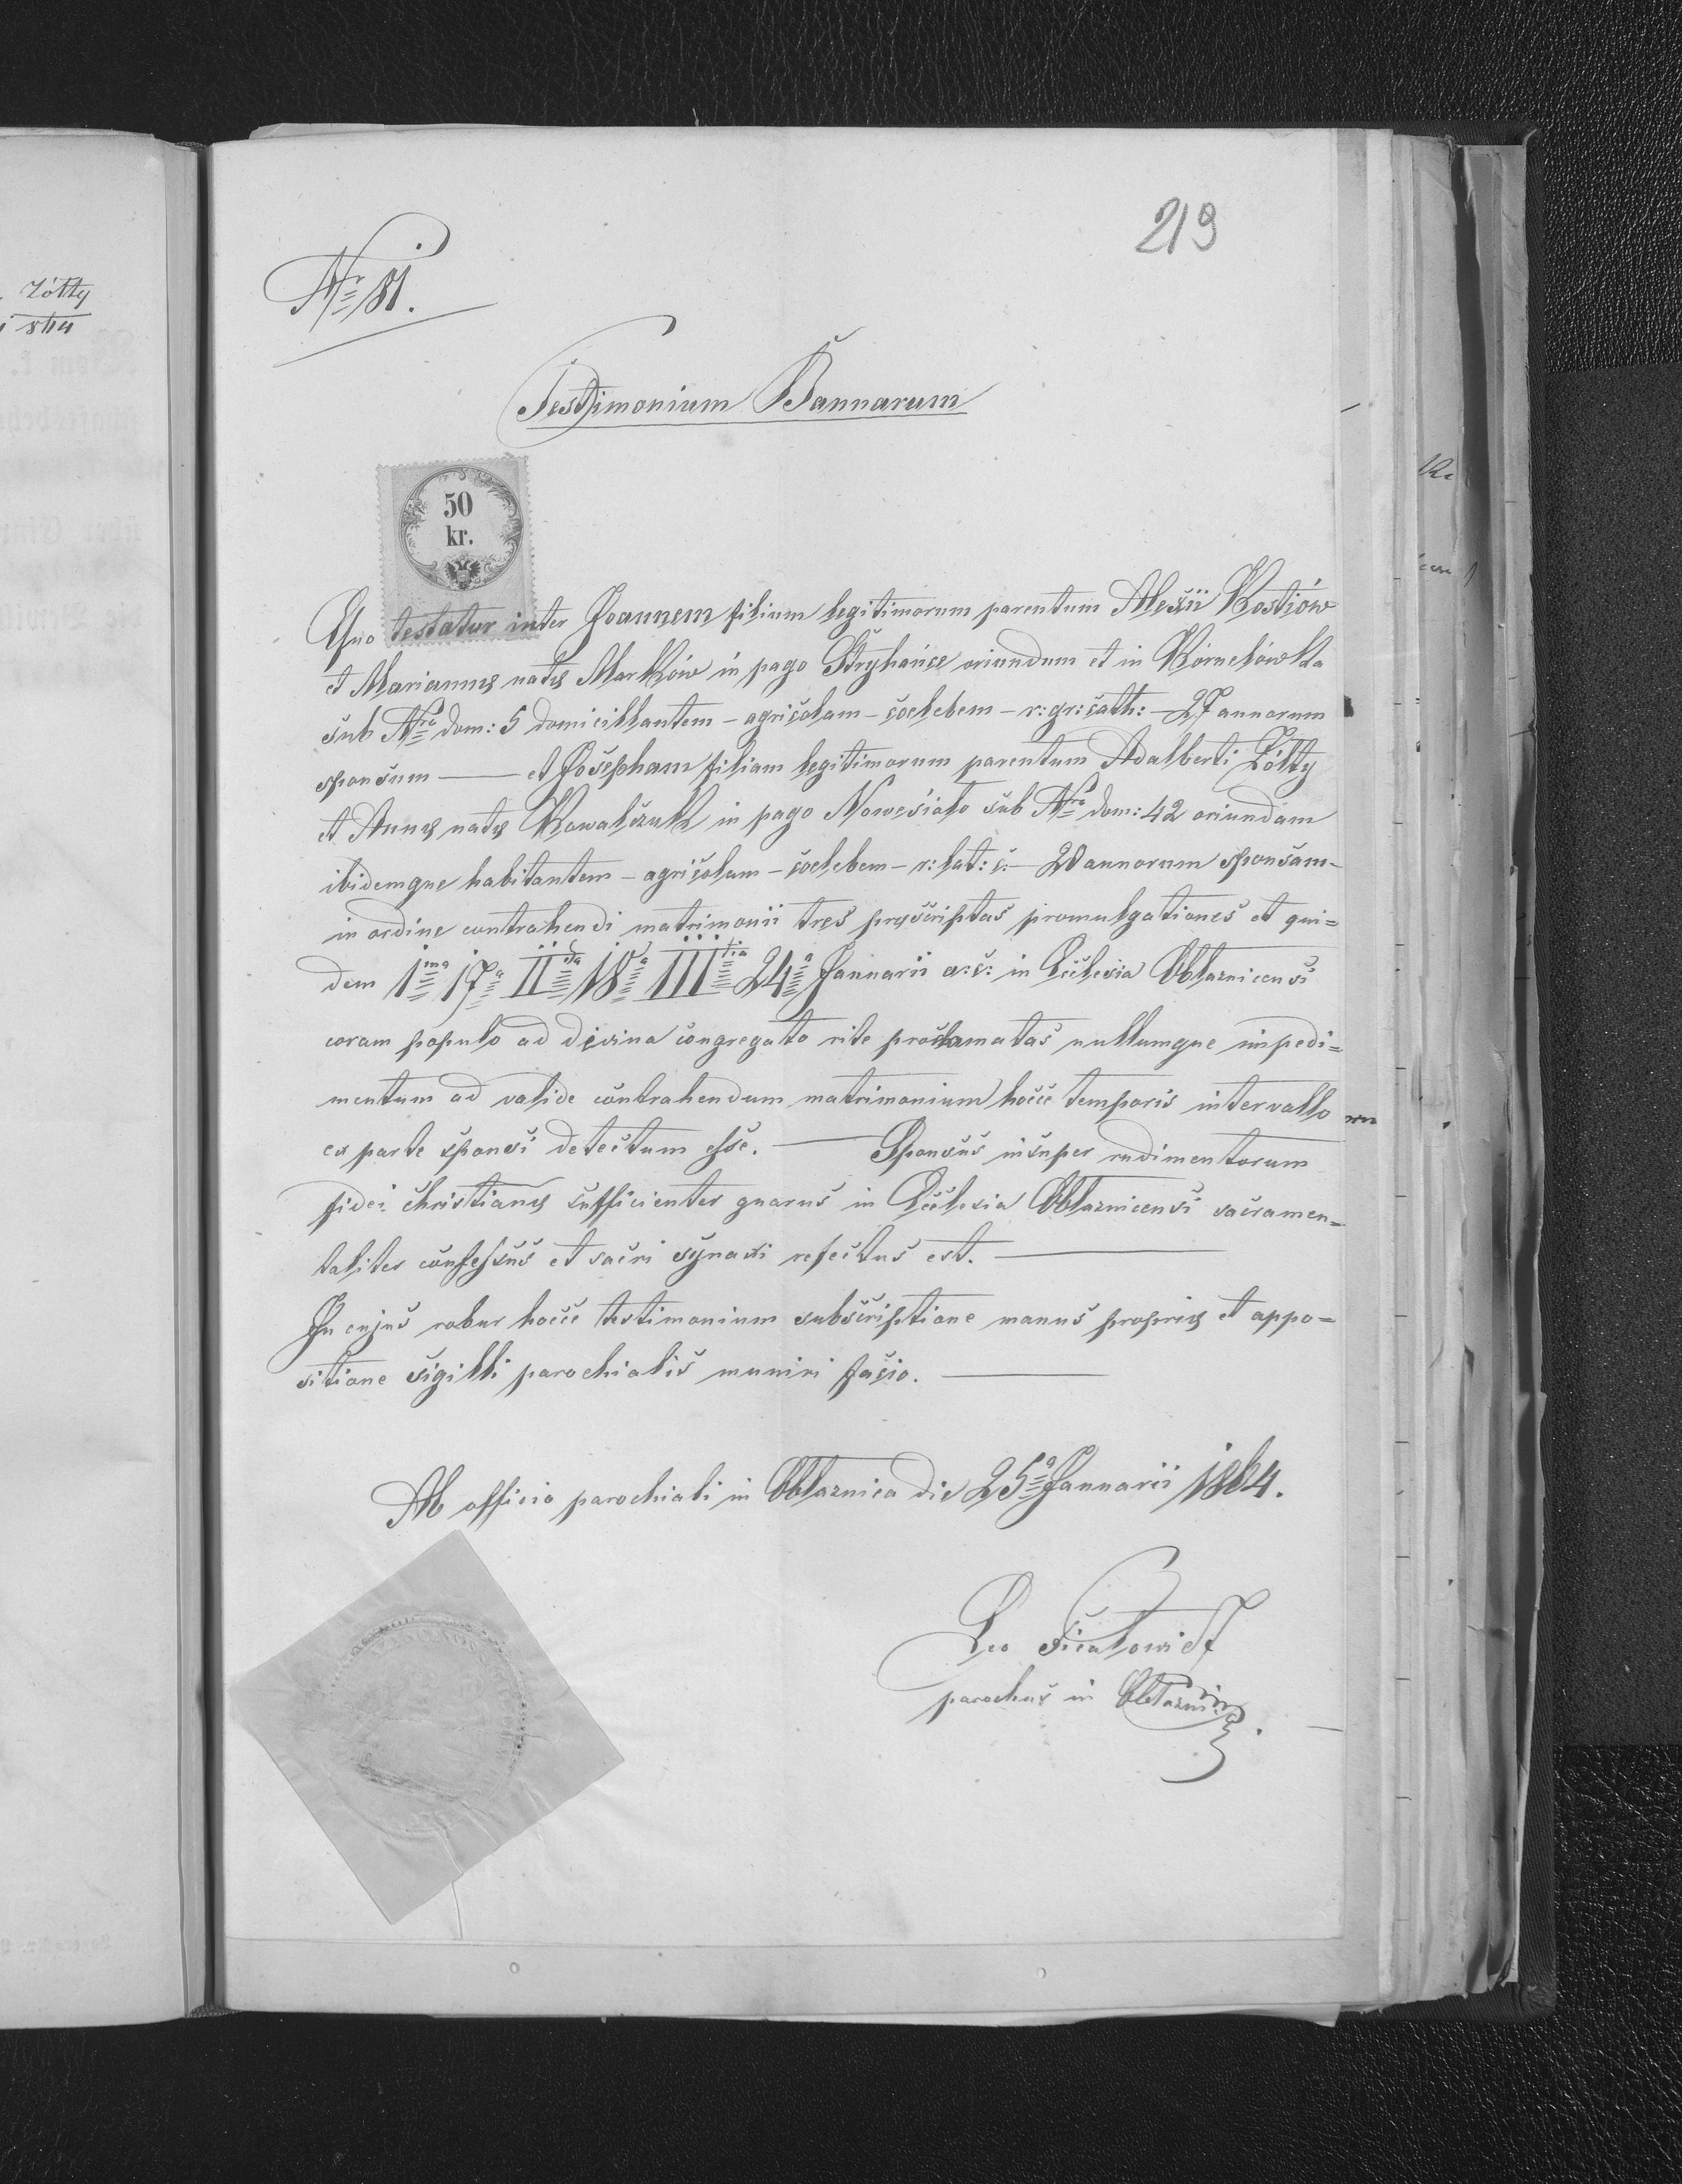 219
Nr 81.
Żółty
Testimonium Bannarum
50
kr.
Quo testatur inter Joannem filium legitimorum parentum Alexii Kostiów
et Mariannæ natæ Marków in pago Stryhańce oriundum et in Kornelówka
sub Nro dom: 5 domicillantem - agricolam - coelebem - r: gr: cath: - 27 annorum
sponsum — et Josepham filiam legitimorum parentum Adalberti Żółty
et Annæ natæ Kowalczuk in pago Nowesioło sub Nro dom: 42 oriundam
ibidemque habitantem - agricolam - coelebem - r: lat: c: - 20 annorum sponsam -
in ordine contrahendi matrimonii tres præscriptas promulgationes et qui=
dem Ima 17a IIda 18a IIItia 24a Januarii a: c: in Ecclesia Obłaznicensi
coram populo ad divina congregato rite proclamatas nullumque impedi=
mentum ad valide contrahendum matrimonium hocce temporis intervallo
ex parte sponsi detectum esse. — Sponsus insuper rudimentorum
fidei christianæ sufficienter gnarus in Ecclesia Obłaznicensi sacramen=
taliter confessus et sacri synaxi refectus est. —
In cujus robur hocce testimonium subscriptione manus propriæ et appo=
sitione sigilli parochialis muniri facio. —
Ab officio parochiali in Obłaznica die 25a Januarii 1884.
Leo
parochus in Obłaznica.